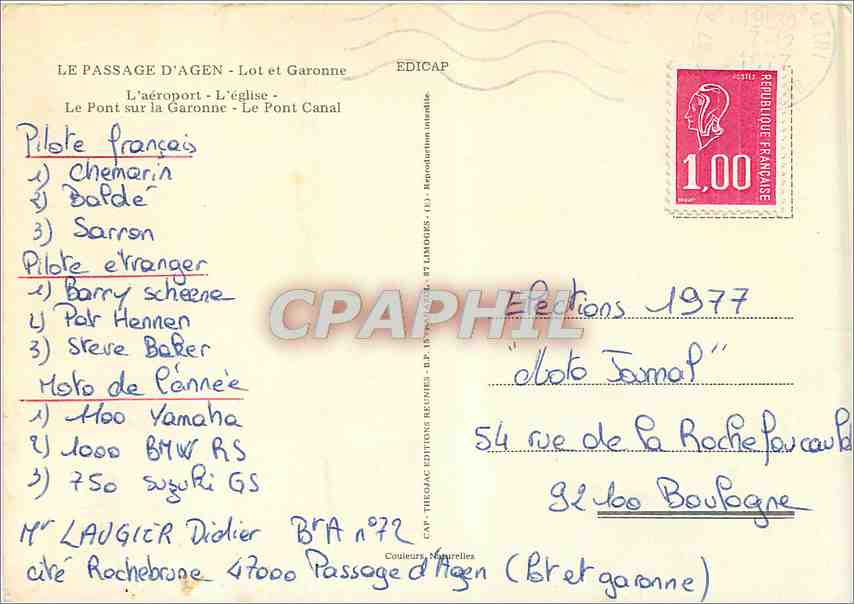 LE PASSAGE D'AGEN - Lot et Garonne
L'aéroport - L'église -
Le Pont sur la Garonne - Le Pont Canal
EDICAP
Pilote français
1) Chemarin
2) Baldé
3) Sarron
Pilote etranger
1) Barry scheene
2) Pat Hennen
3) Steve Baker
Moto de l'année
1) 1100 Yamaha
2) 1000 BMW RS
3) 750 suzuki GS
Mr LAUGIER Didier Bt A n°72
cité Rochebrune 47000 Passage d'Agen (lot et garonne)
CAP - THEOJAC EDITIONS REUNIES - B.P. 15 LIMOGES - (E) - Reproduction interdite.
Couleurs Naturelles
CPAPHIL
POSTES
REPUBLIQUE FRANÇAISE
1,00
Elections 1977
"Moto Journal"
54 rue de la Rochefoucauld
92100 Boulogne